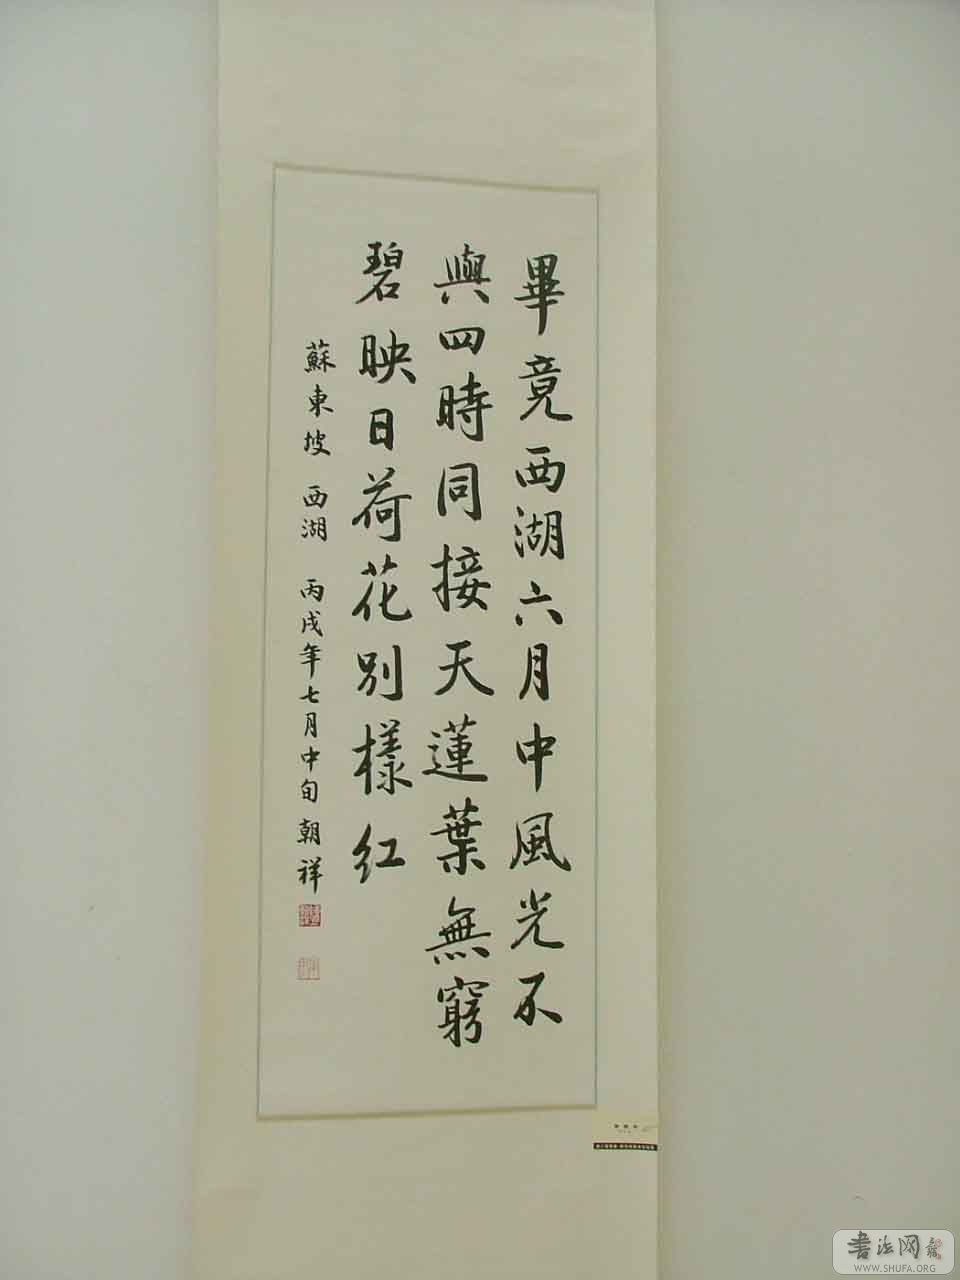 畢竟西湖六月中風光不
與四時同接天蓮葉無窮
碧映日荷花別樣紅
蘇東坡 西湖 丙戌年七月中旬 朝祥
书法网
WWW.SHUFA.ORG